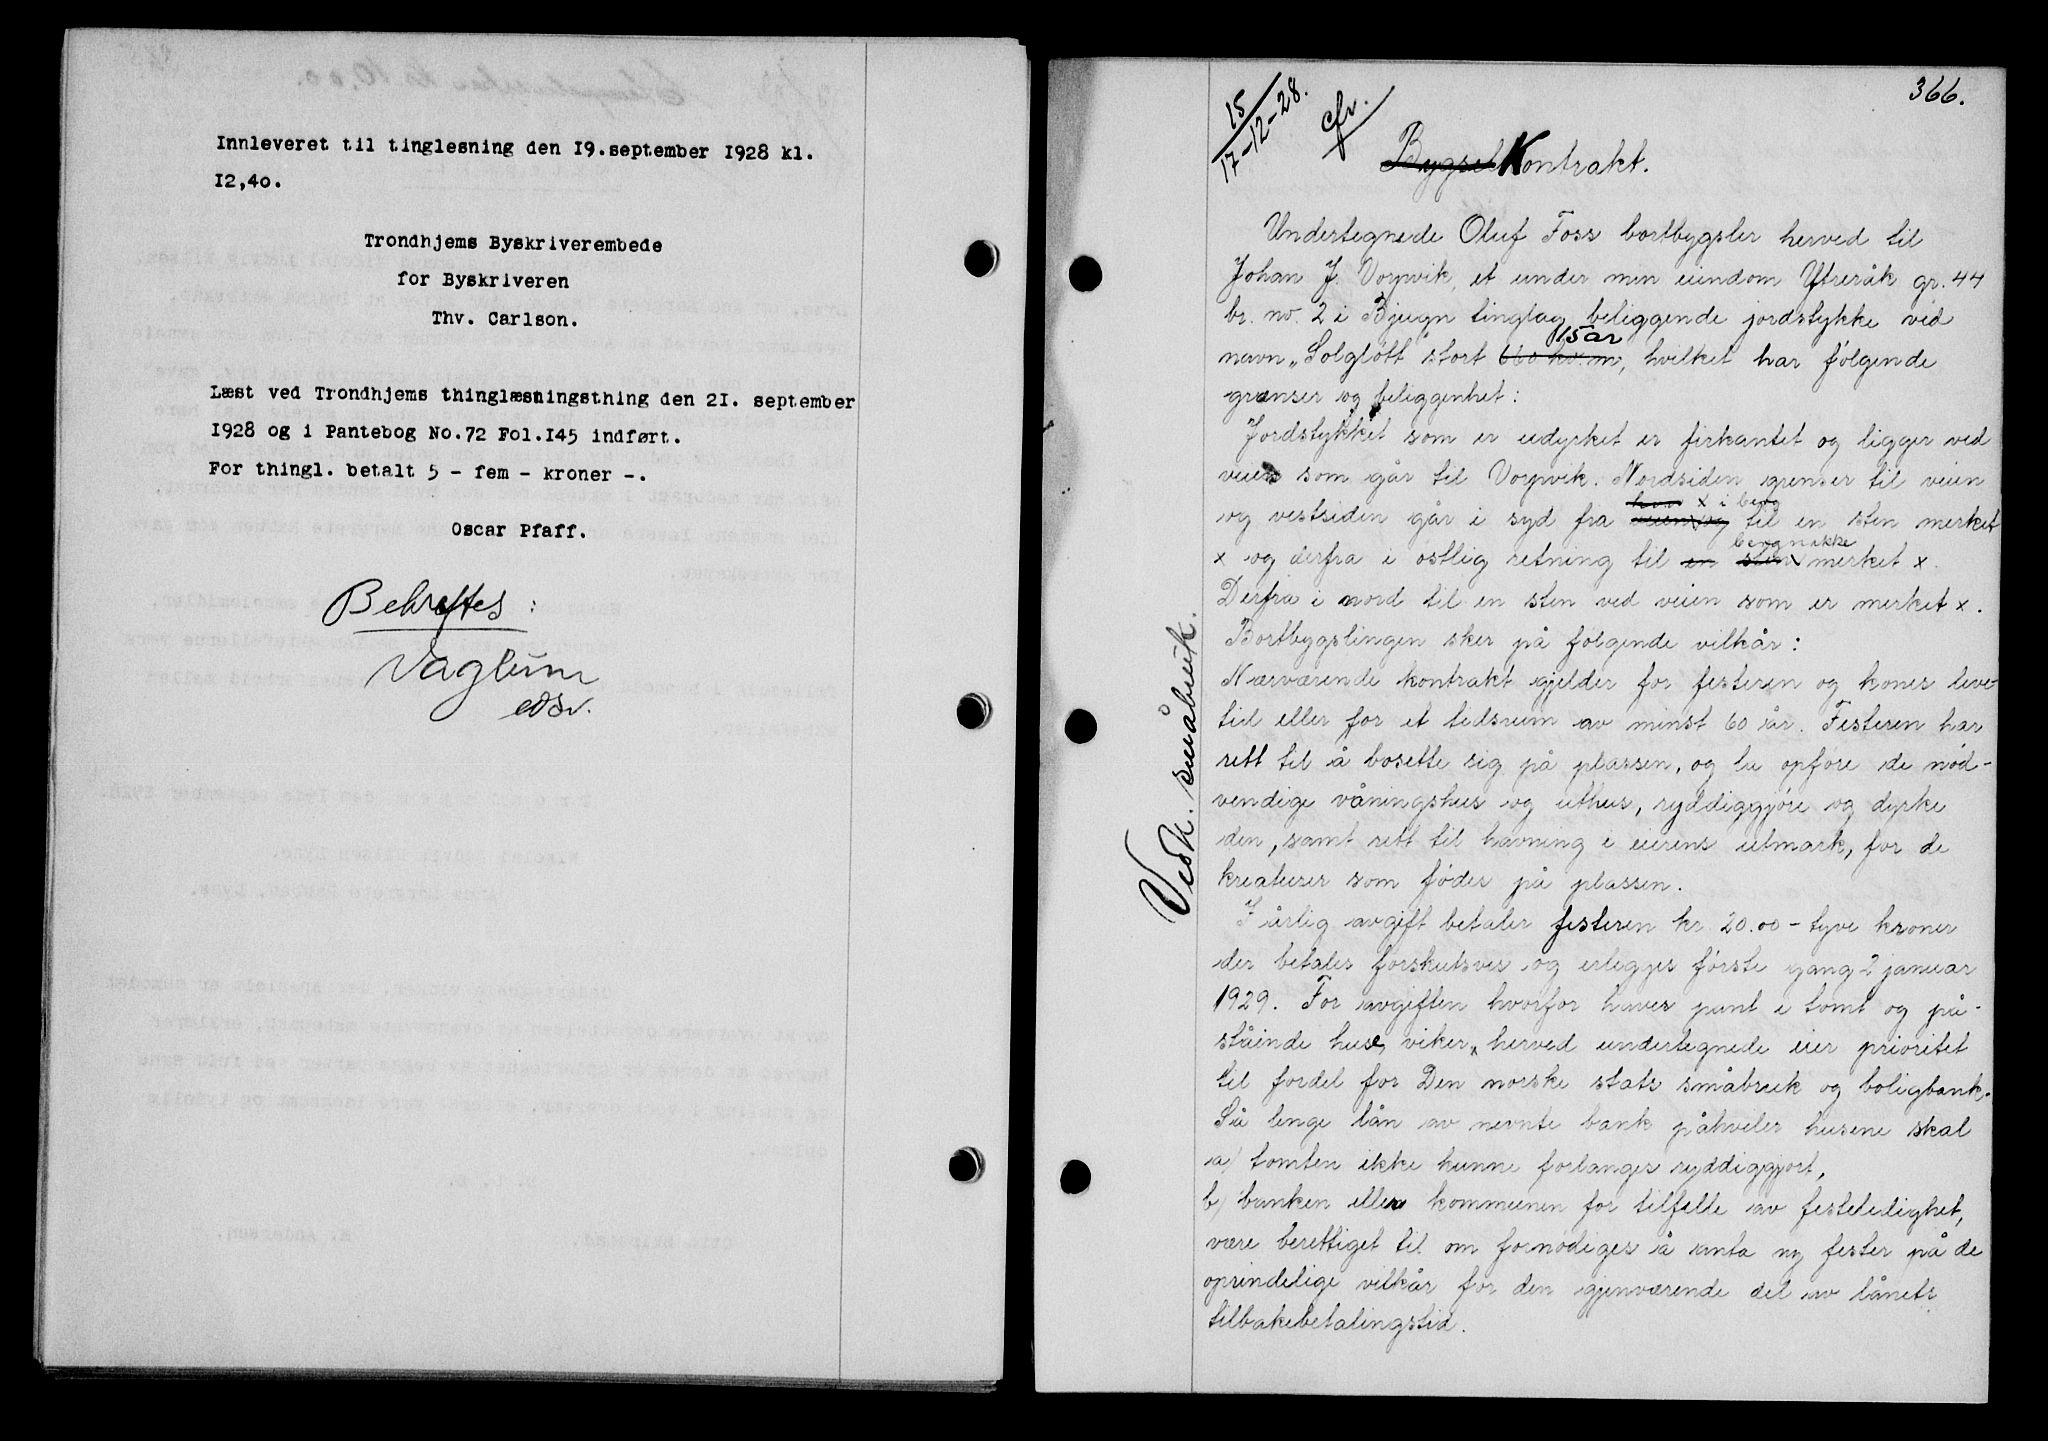 Innleveret til tinglesning den 19.september 1928 kl.
12,40.
Trondhjems Byskriverembede
for Byskriveren
Thv. Carlson.
Læst ved Trondhjems thinglæsningsthing den 21. september
1928 og i Pantebog No.72 Fol.145 indført.
For thingl. betalt 5 - fem - kroner -.
Oscar Pfaff.
Bekreftes:
Vaglum
edsv.
366.
15/17-12-28.
cfr.
Bygsel Kontrakt.
Undertegnede Oluf Foss bortbygsler herved til
Johan J. Vorpvik, et under min eiendom Ytreråk gr. 44
br. no. 2 i Bjugn tinglag beliggende jordstykke ved
15 ar
navn "Solgløtt" stort kv. m, hvilket har følgende
grenser og beliggenhet:
Jordstykket som er udyrket er firkantet og ligger ved
veien som går til Vorpvik. Nordsiden grenser til veien
x i berg
og vestsiden går i syd fra veien og til en sten merket
bergnakke
x og derfra i østlig retning til en sten merket x.
Derfra i nord til en sten ved veien som er merket x.
Bortbygslingen skjer på følgende vilkår:
Nærværende kontrakt gjelder for festeren og kones leve-
tid eller for et tidsrum av minst 60 år. Festeren har
rett til å bosette sig på plassen, og la opføre de nød-
vendige våningshus og uthus, ryddiggjøre og dyrke
den, samt rett til havning i eierens utmark, for de
kreaturer som fødes på plassen.
I årlig avgift betaler festeren kr. 20.00 - tyve kroner
der betales forskutsvis og erlegges første gang 2 januar
1929. For avgiften hvorfor haves pant i tomt og på-
ståinde huse, viker herved undertegnede eier prioritet
til fordel for Den norske stats småbruk og boligbank.
Så lenge lån av nevnte bank påhviler husene skal
a/ tomten ikke kunne forlanges ryddiggjort,
b/ banken eller kommunen for tilfelle av festeledighet,
være berettiget til om fornødiges å anta ny fester på de
oprindelige vilkår for den gjenværende del av lånets
tilbakebetalingstid.
Vedk. småbruk.